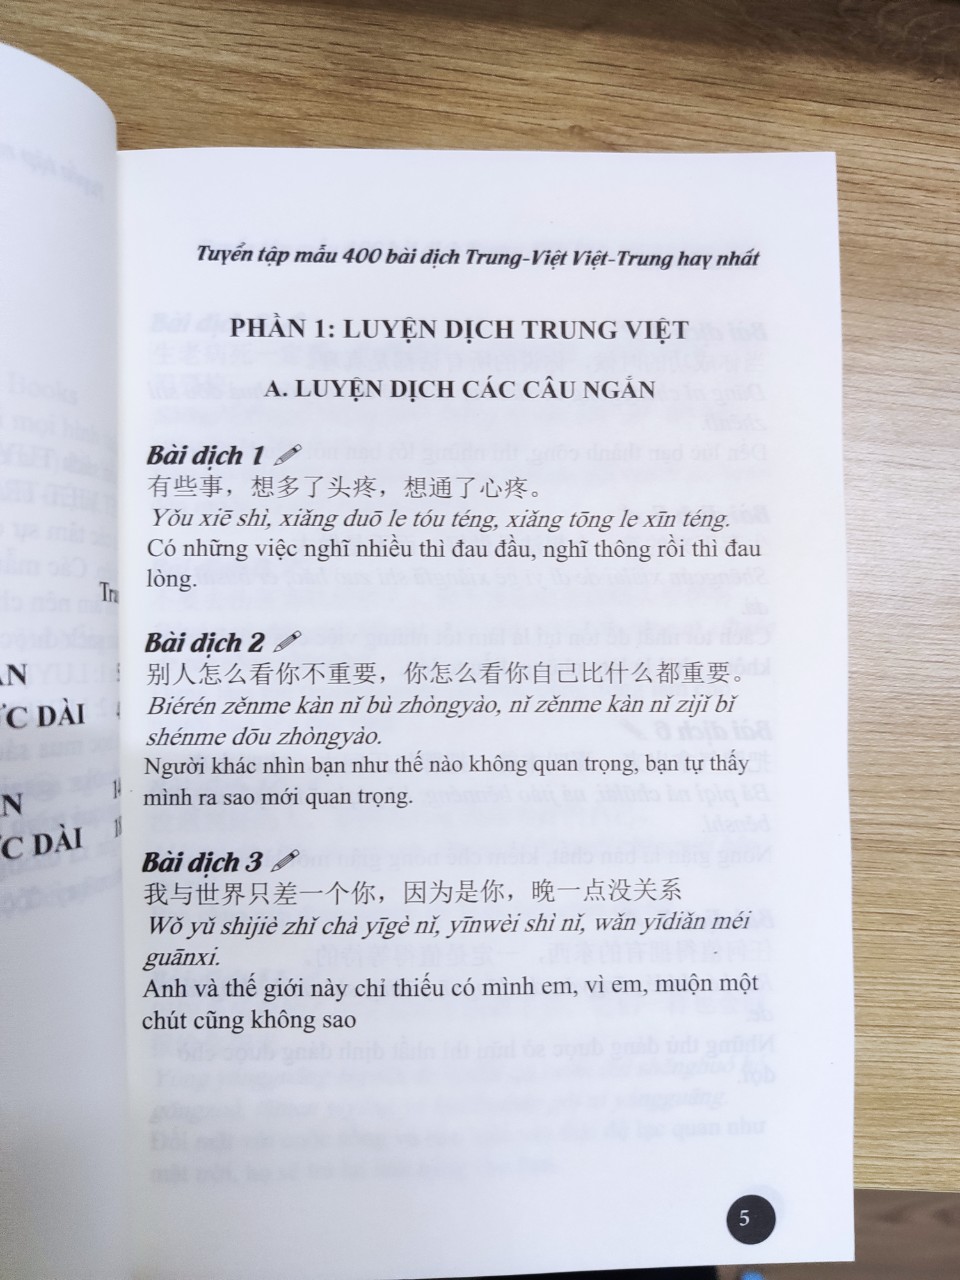 Tuyển tập mẫu 400 bài dịch Trung-Việt Việt-Trung hay nhất
PHẦN 1: LUYỆN DỊCH TRUNG VIỆT
A. LUYỆN DỊCH CÁC CÂU NGẮN
Bài dịch 1
有些事，想多了头疼，想通了心疼。
Yǒu xiē shì, xiǎng duō le tóu téng, xiǎng tōng le xīn téng.
Có những việc nghĩ nhiều thì đau đầu, nghĩ thông rồi thì đau
lòng.
Bài dịch 2
别人怎么看你不重要，你怎么看你自己比什么都重要。
Biérén zěnme kàn nǐ bù zhòngyào, nǐ zěnme kàn nǐ zìjǐ bǐ
shénme dōu zhòngyào.
Người khác nhìn bạn như thế nào không quan trọng, bạn tự thấy
mình ra sao mới quan trọng.
Bài dịch 3
我与世界只差一个你，因为是你，晚一点没关系
Wǒ yǔ shìjiè zhǐ chà yīgè nǐ, yīnwèi shì nǐ, wǎn yīdiǎn méi
guānxi.
Anh và thế giới này chỉ thiếu có mình em, vì em, muộn một
chút cũng không sao
5
ỰC DÀI